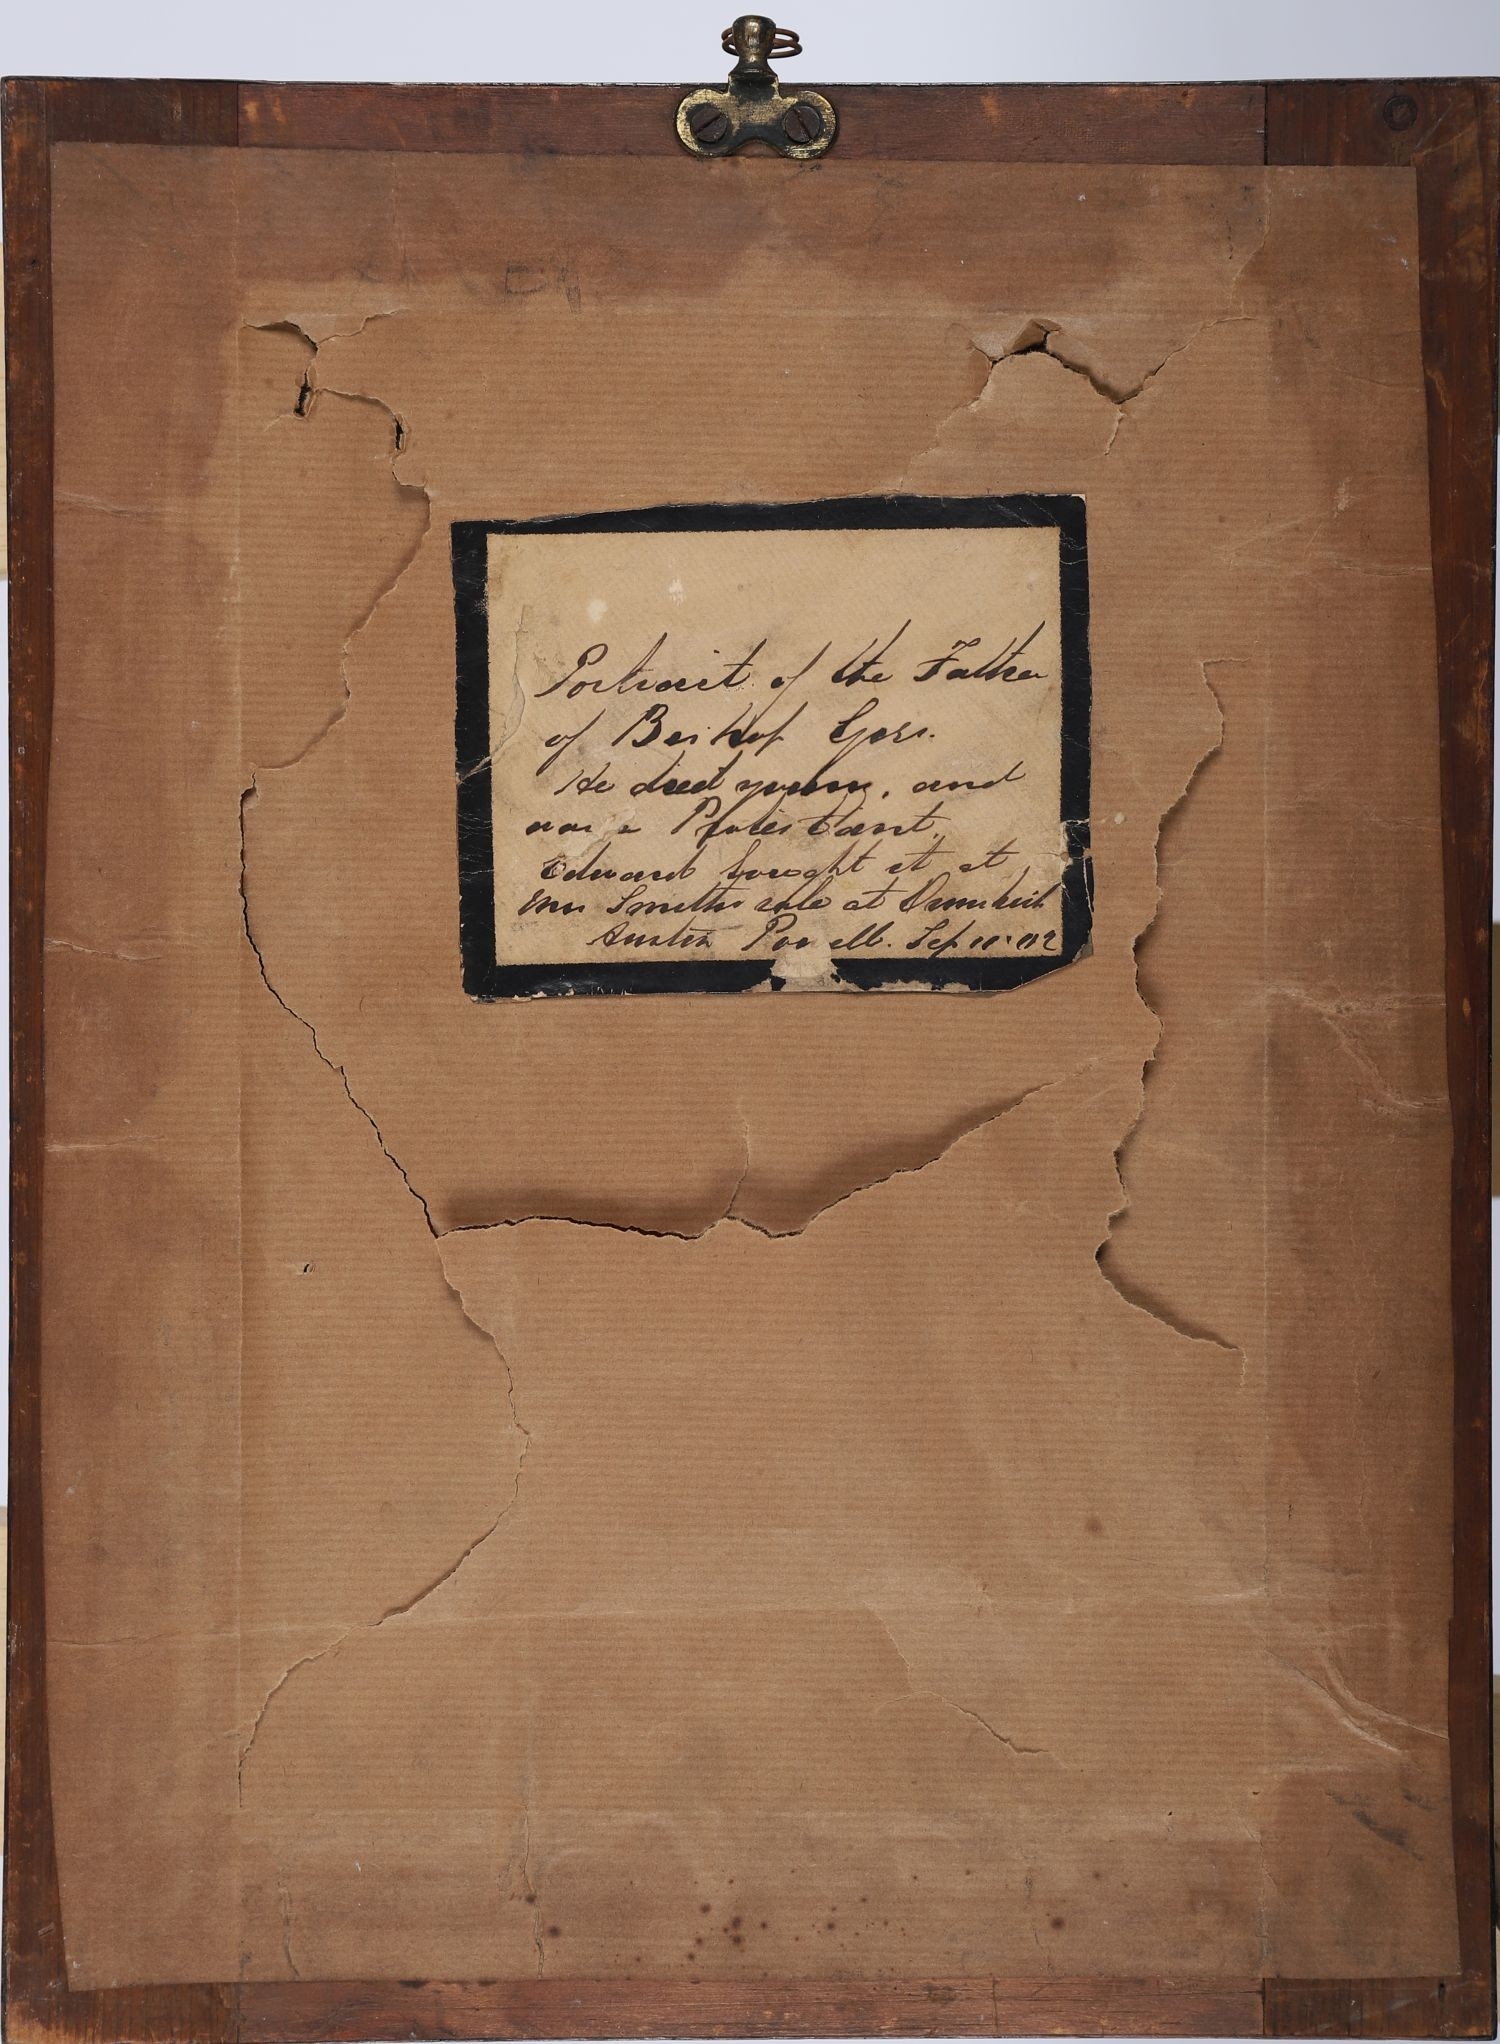 Portrait of the Father
of Bishop Goss.
He died young, and
was a Protestant.
Edward bought it at
Mrs Smiths sale at
Austin Powell. Sep